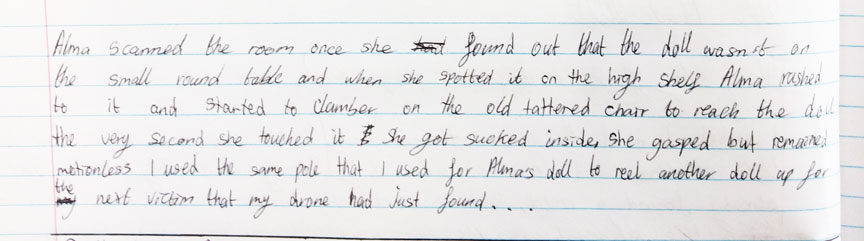 Alma scanned the room once she had found out that the doll wasn't on
the small round table and when she spotted it on the high shelf Alma rushed
to it and started to clamber on the old tattered chair to reach the doll
the very second she touched it she got sucked inside, she gasped but remained
motionless I used the same pole that I used for Alma's doll to reel another doll up for
the next victim that my drone had just found....